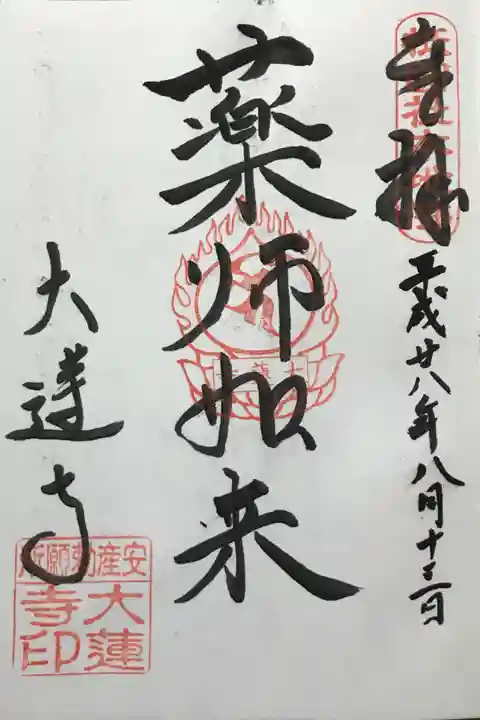 奉拝
平成廿八年八月十三日
薬師如来
大蓮寺
安産勅願所
大蓮
寺印